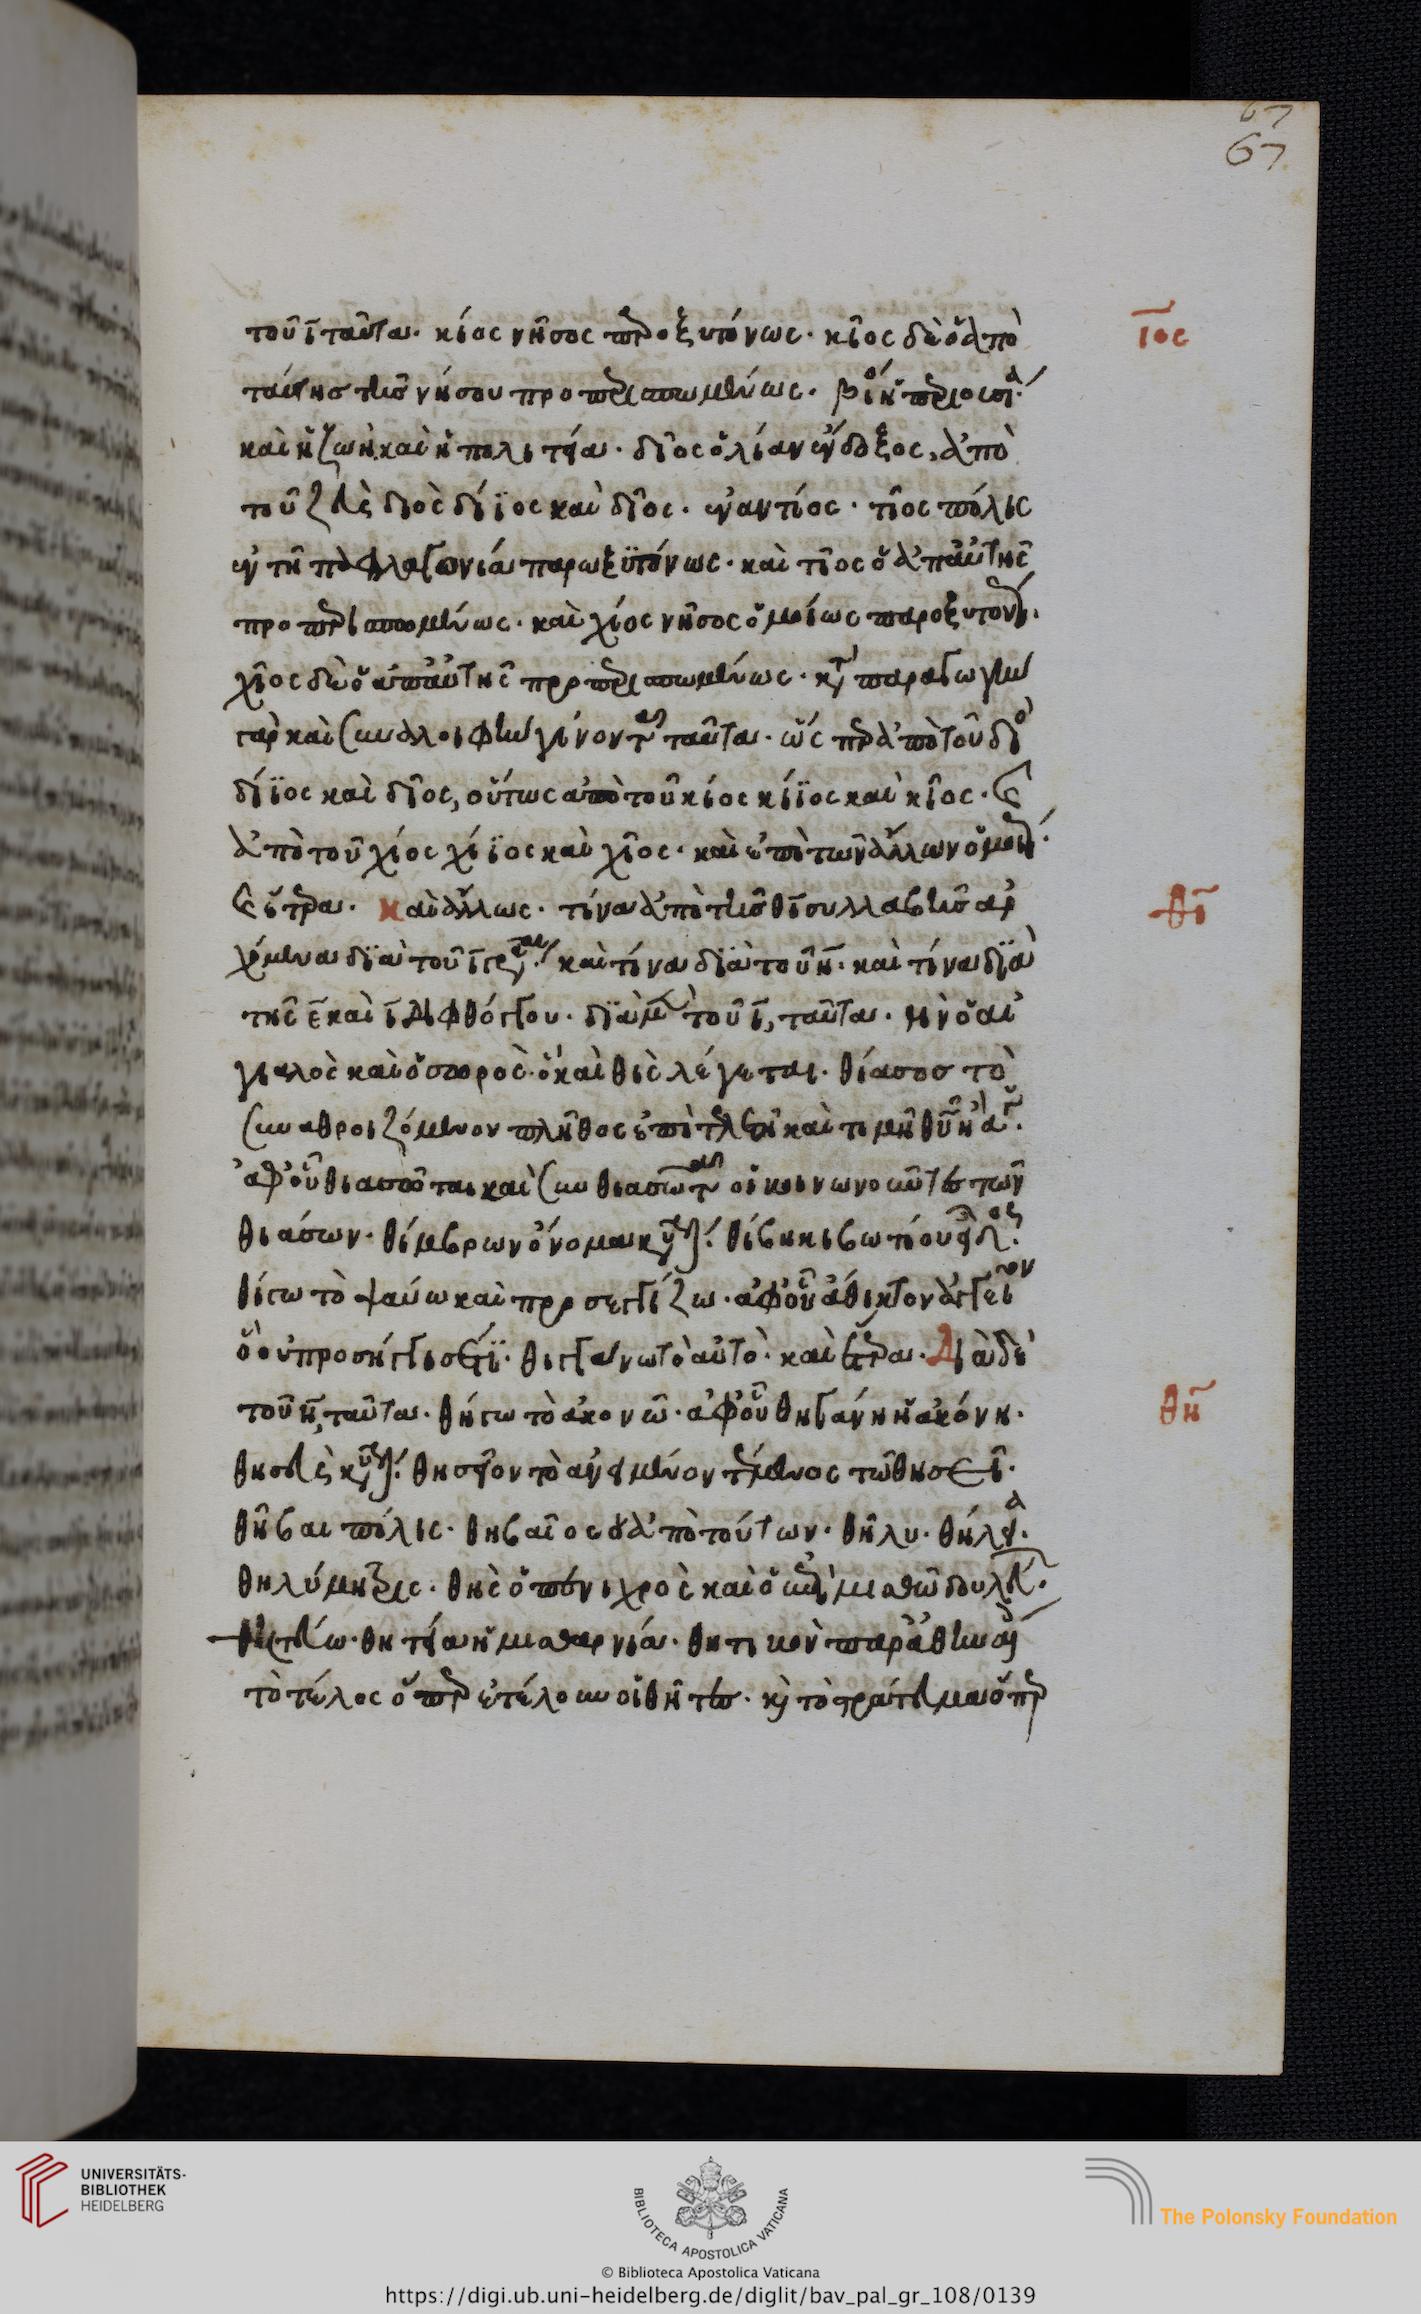 67
67
τοῦ ῑ ταῦτα. κίος νῆσος παροξυτόνως. κῖος δὲ ὁ ἀπὸ
ταύτης τῆς νήσου προπερισπωμένως. βίος ἡ περιουσία
καὶ ἡ ζωὴ καὶ ἡ πολιτεία. δῖος ὁ λίαν ἔνδοξος, ἀπὸ
τοῦ ζεὺς διὸς δίϊος καὶ δῖος. ἐναντίος. τίος πόλις
ἐν τῆ παφλαγονία παρωξϋτόνως. καὶ τῖος ὁ ἀπ' αὐτῆς
προπερισπωμένως. καὶ χίος νῆσος ὁμοίως παροξυτόνως.
χῖος δὲ ὁ ἀπ' αὐτῆς προπερισπωμένως. κατὰ παραγωγὴν
γὰρ καὶ συναλοιφὴν γίνονται ταῦτα. ὥσπερ ἀπὸ τοῦ διὸς
δίϊος καὶ δῖος, οὕτως ἀπὸ τοῦ κίος κίϊος καὶ κῖος. καὶ
ἀπὸ τοῦ χίος χίϊος καὶ χῖος. καὶ ἐπὶ τῶν ἄλλων ὁμοίως.
καὶ ἕτερα. καὶ ἄλλως. τίνα ἀπὸ τῆς θῑ συλλαβῆς ἀρ
χόμενα διὰ τοῦ ῑ γράφεται. καὶ τίνα διὰ τοῦ η̄. καὶ τίνα διὰ
τῆς ε̄ καὶ ῑ διφθόγγου. διὰ μὲν τοῦ ῑ, ταῦτα. θὶν ὁ αἰ
γιαλὸς καὶ ὁ σωρὸς. ὃ καὶ θὶς λέγεται. θίασος τὸ
συναθροιζόμενον πλῆθος ἐπὶ τελετῆ καὶ τιμῆ θεοῦ
ἀφ' οὗ θιασῶται καὶ συνθιασῶται οἱ κοινωνοῦντες τῶν
θιάσων. θίμβρων ὄνομα κύριον. θίβη κιβωτίου εἶδος.
θίγω τὸ ψαύω καὶ προσεγγίζω. ἀφ' οὗ ἄθικτον ἀγγεῖον
ὃ οὐ προσήγγισέ τι. θιγγάνω τὸ αὐτὸ. καὶ ἕτερα. Διὰ δὲ
τοῦ η̄, ταῦτα. θήγω τὸ ἀκονῶ. ἀφ' οὗ θηγάνη ἡ ἀκόνη.
θησεὺς κύριον. θησεῖον τὸ ἀνειμένον τέμενος τῶ θησεῖ.
θῆβαι πόλις. θηβαῖος ὁ ἀπὸ τούτων. θῆλυ. θήλεια.
θηλύμητρις. θὴς ὁ πονιχρὸς καὶ ὁ ἐπὶ μισθῶ δουλεύων.
θητεύω. θητεία ἡ μισθαρνία. θητικὸν παρ' ἀθηναίοις
τὸ τέλος ὅπερ ἐτέλουν οἱ θῆτες. καὶ τὸ στράτευμα ὅπερ
ῑος
θῑ
θη̄
UNIVERSITÄTS-
BIBLIOTHEK
HEIDELBERG
BIBLIOTECA APOSTOLICA VATICANA
The Polonsky Foundation
© Biblioteca Apostolica Vaticana
https://digi.ub.uni-heidelberg.de/diglit/bav_pal_gr_108/0139